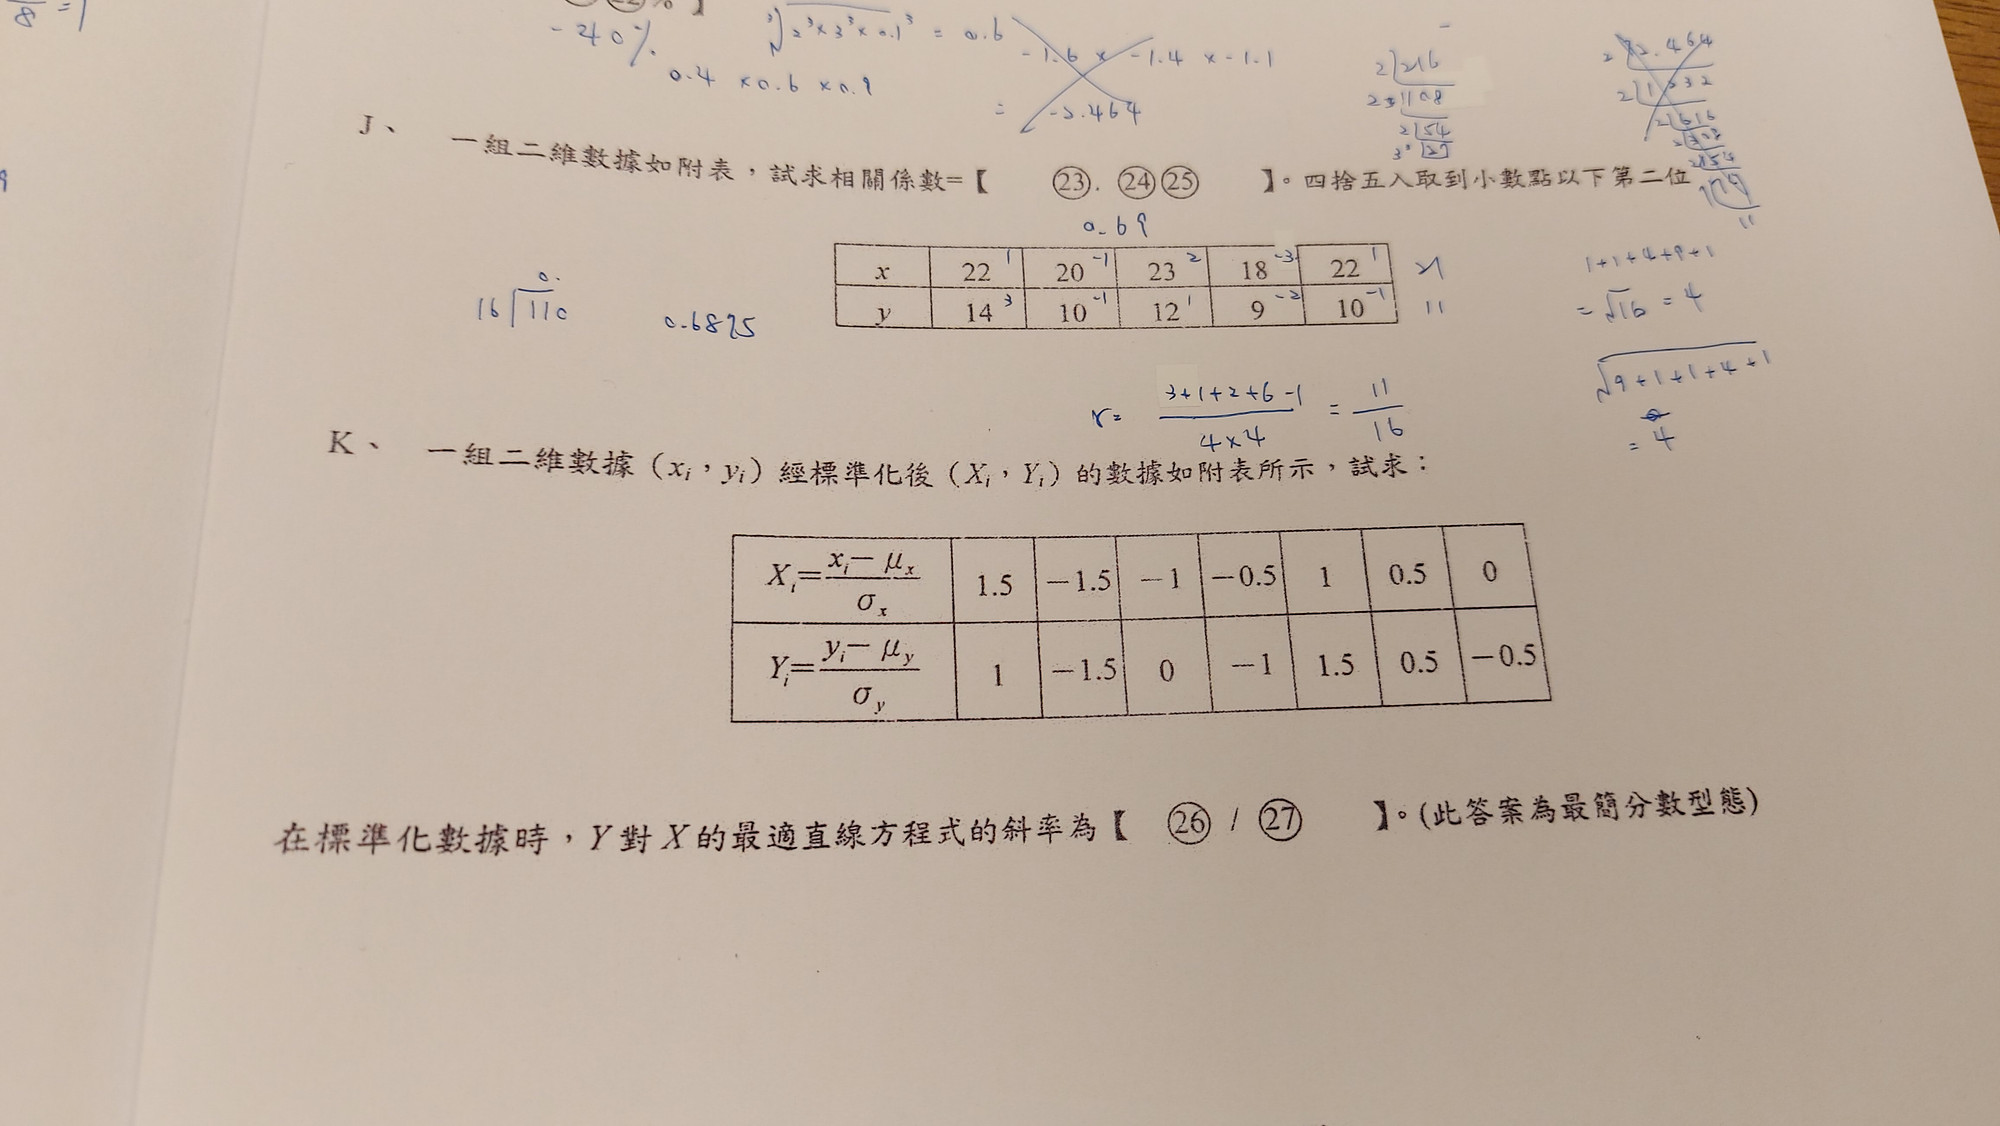 8 = 1
㉒%】
-40%
∛2³×3³×0.1³ = 0.6
0.4 ×0.6 ×0.9
-1.6 × -1.4 × -1.1
= -2.464
2 216
2 108
2 54
3 27
2 2.464
2 1 232
2 616
J、 一組二維數據如附表，試求相關係數=【 ㉓. ㉔㉕ 】。四捨五入取到小數點以下第二位
0.69
x 22 1 20 -1 23 2 18 -3 22 1 21
y 14 3 10 -1 12 1 9 -2 10 -1 11
16 110
0.
0.6875
1+1+4+9+1
= √16 = 4
√9+1+1+4+1
= 4
r= 3+1+2+6-1 / 4×4 = 11 / 16
K、 一組二維數據（xi，yi）經標準化後（Xi，Yi）的數據如附表所示，試求：
Xi= xi－μx / σx 1.5 －1.5 －1 －0.5 1 0.5 0
Yi= yi－μy / σy 1 －1.5 0 －1 1.5 0.5 －0.5
在標準化數據時，Y對X的最適直線方程式的斜率為【 ㉖ / ㉗ 】。(此答案為最簡分數型態)